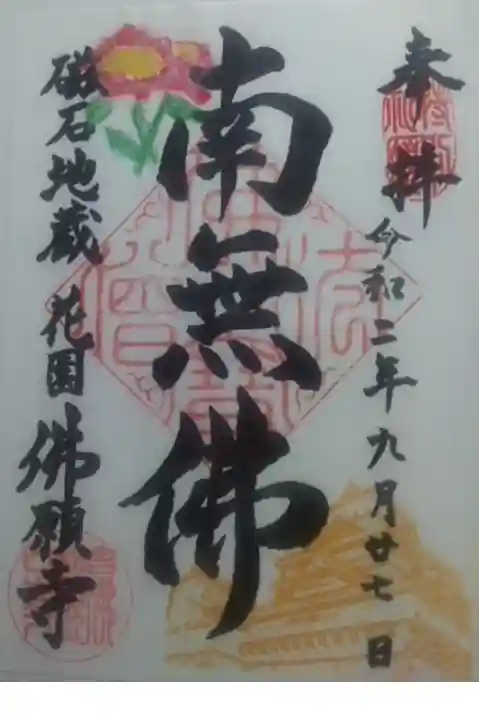 奉拝
令和二年九月廿七日
南無佛
磁石地蔵 花園佛願寺